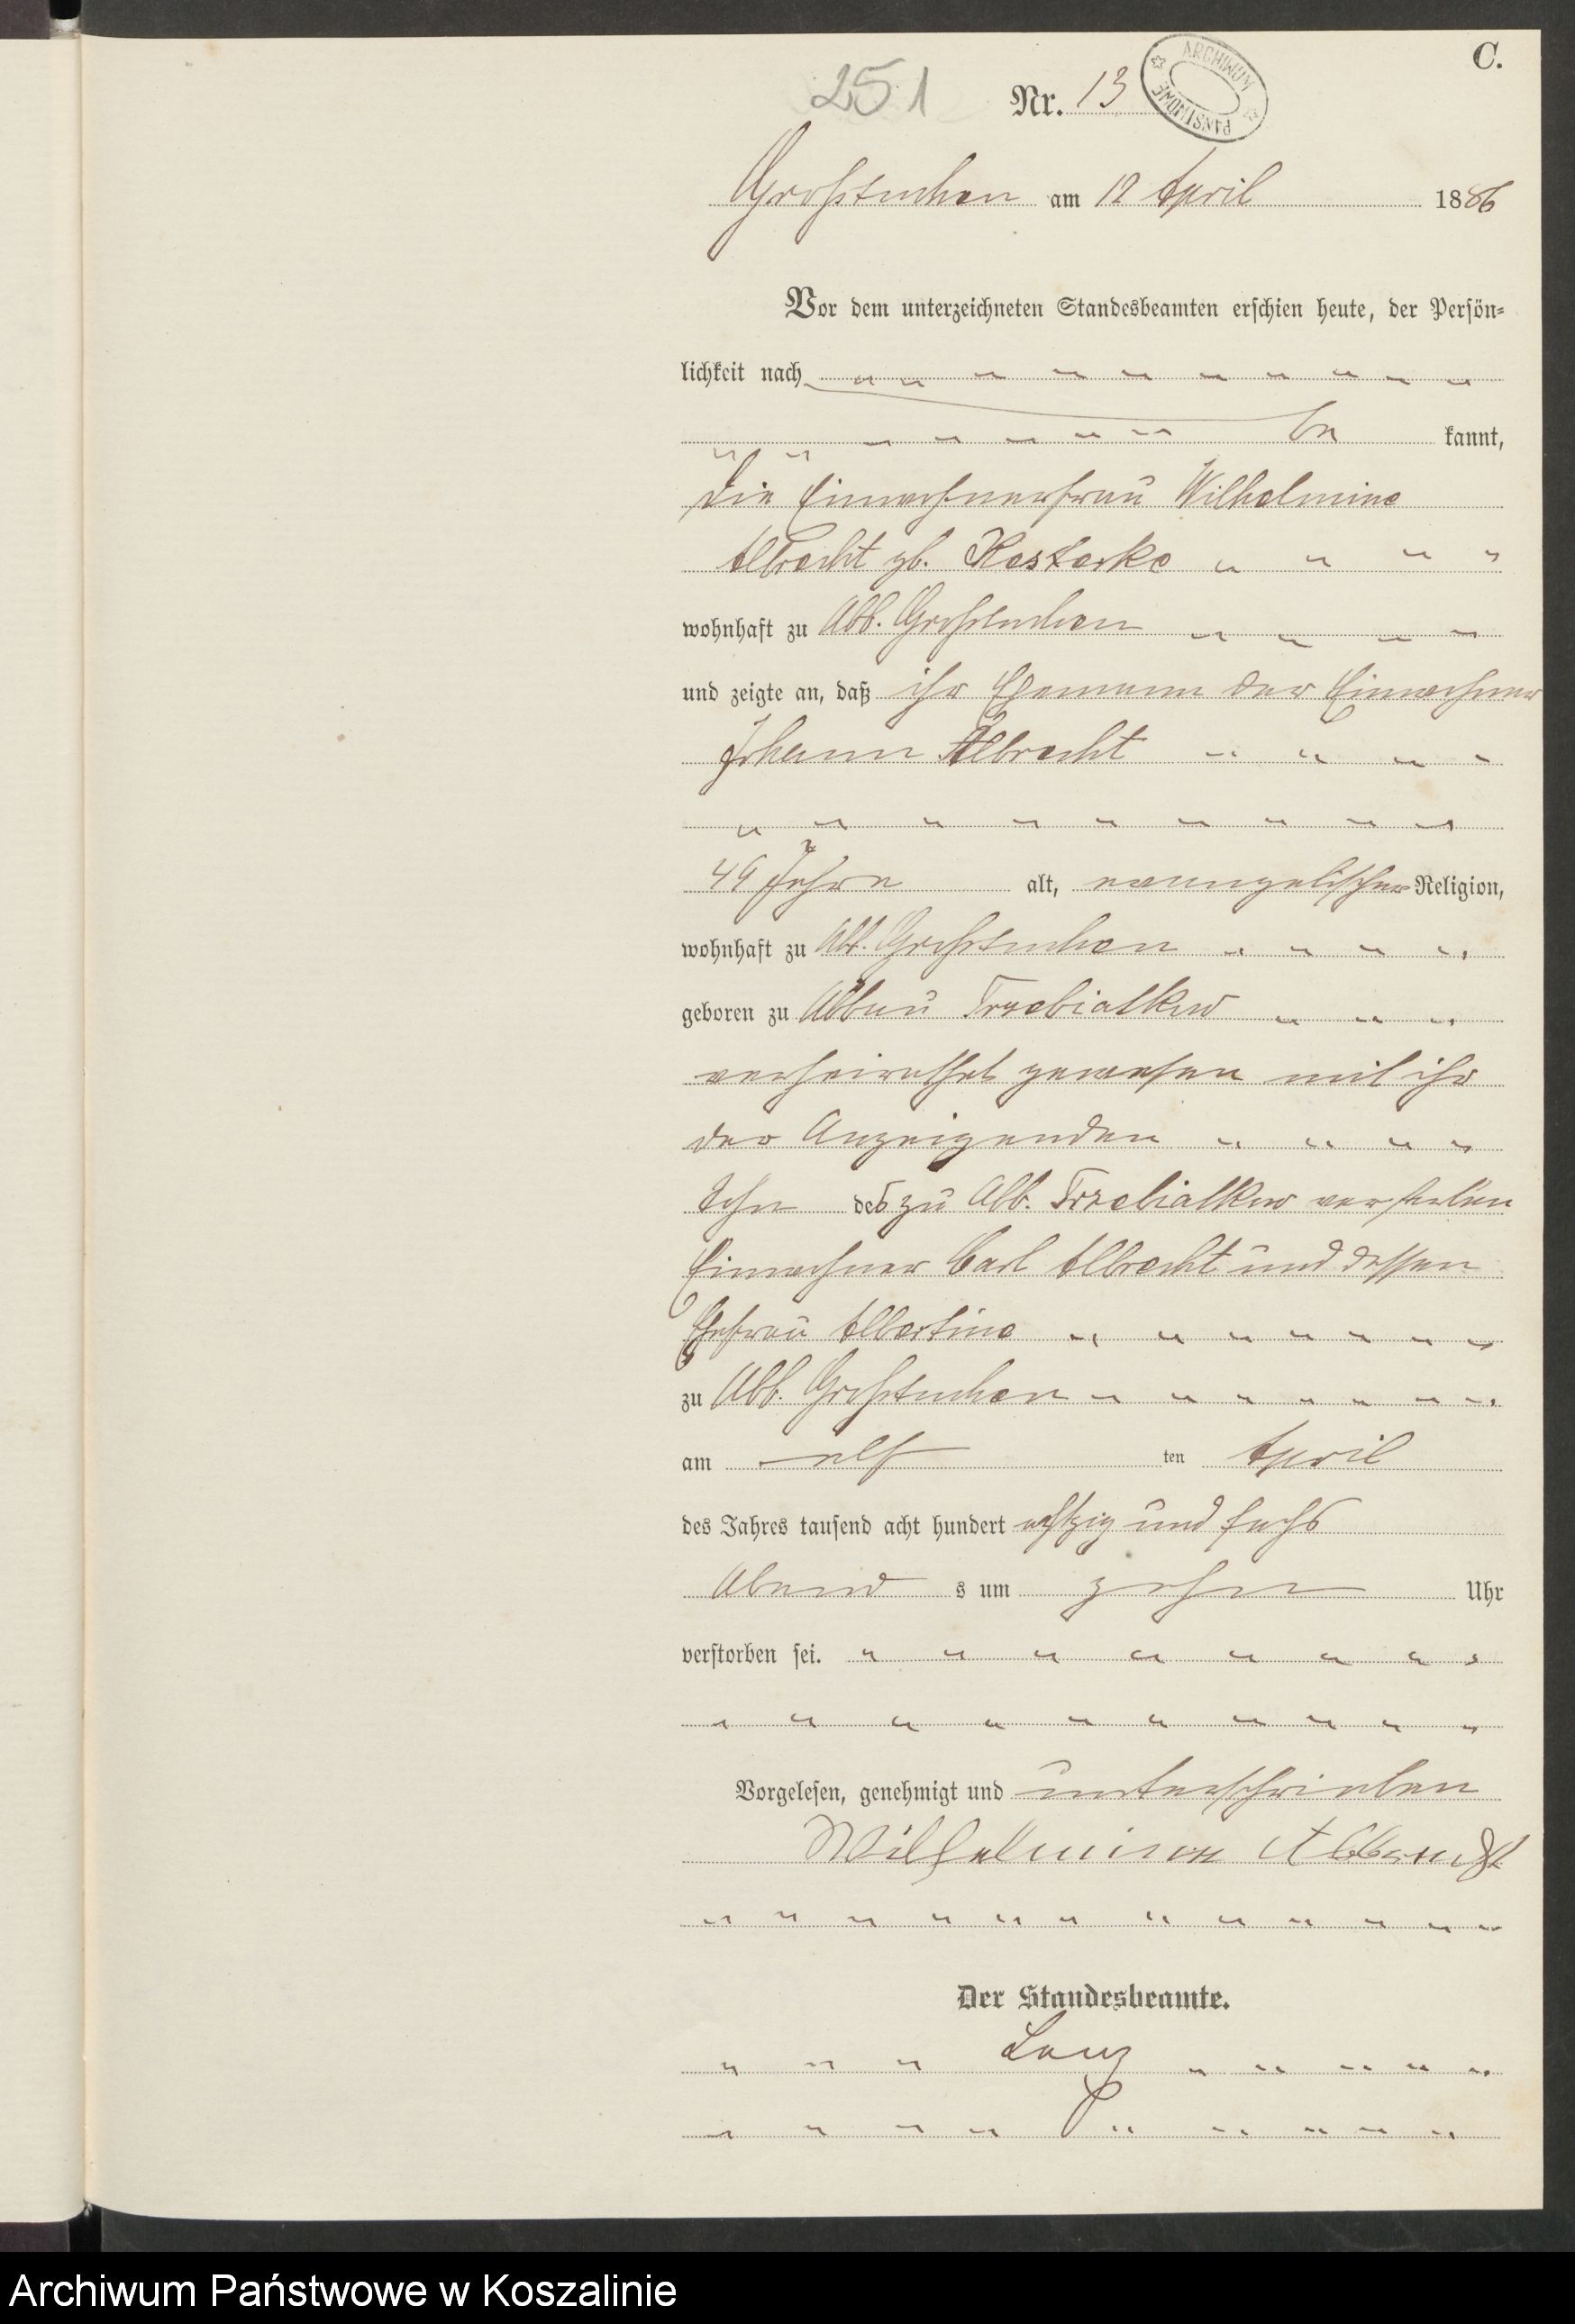 C.
251 Nr. 13
ARCHIWUM PAŃSTWOWE
Großtuchen am 12 April 1886
Vor dem unterzeichneten Standesbeamten erschien heute, der Persön-
lichkeit nach
be kannt,
die Einwohnerfrau Wilhelmine
Albrecht gb.
wohnhaft zu Abb. Großtuchen
und zeigte an, daß ihr Ehemann der Einwohner
Johann Albrecht
49 Jahre alt, evangelischer Religion,
wohnhaft zu Abb. Großtuchen
geboren zu Abbau Trzebiatkow
verheirathet gewesen mit ihr
der Anzeigenden
Sohn des zu Abb. Trzebiatkow verstorben
Einwohner Carl Albrecht und dessen
Ehefrau Albertine
zu Abb. Großtuchen
am elf ten April
des Jahres tausend acht hundert achtzig und sechs
Abend s um zehn Uhr
verstorben sei.
Vorgelesen, genehmigt und unterschrieben
Wilhelmine Albrecht
Der Standesbeamte.
Archiwum Państwowe w Koszalinie